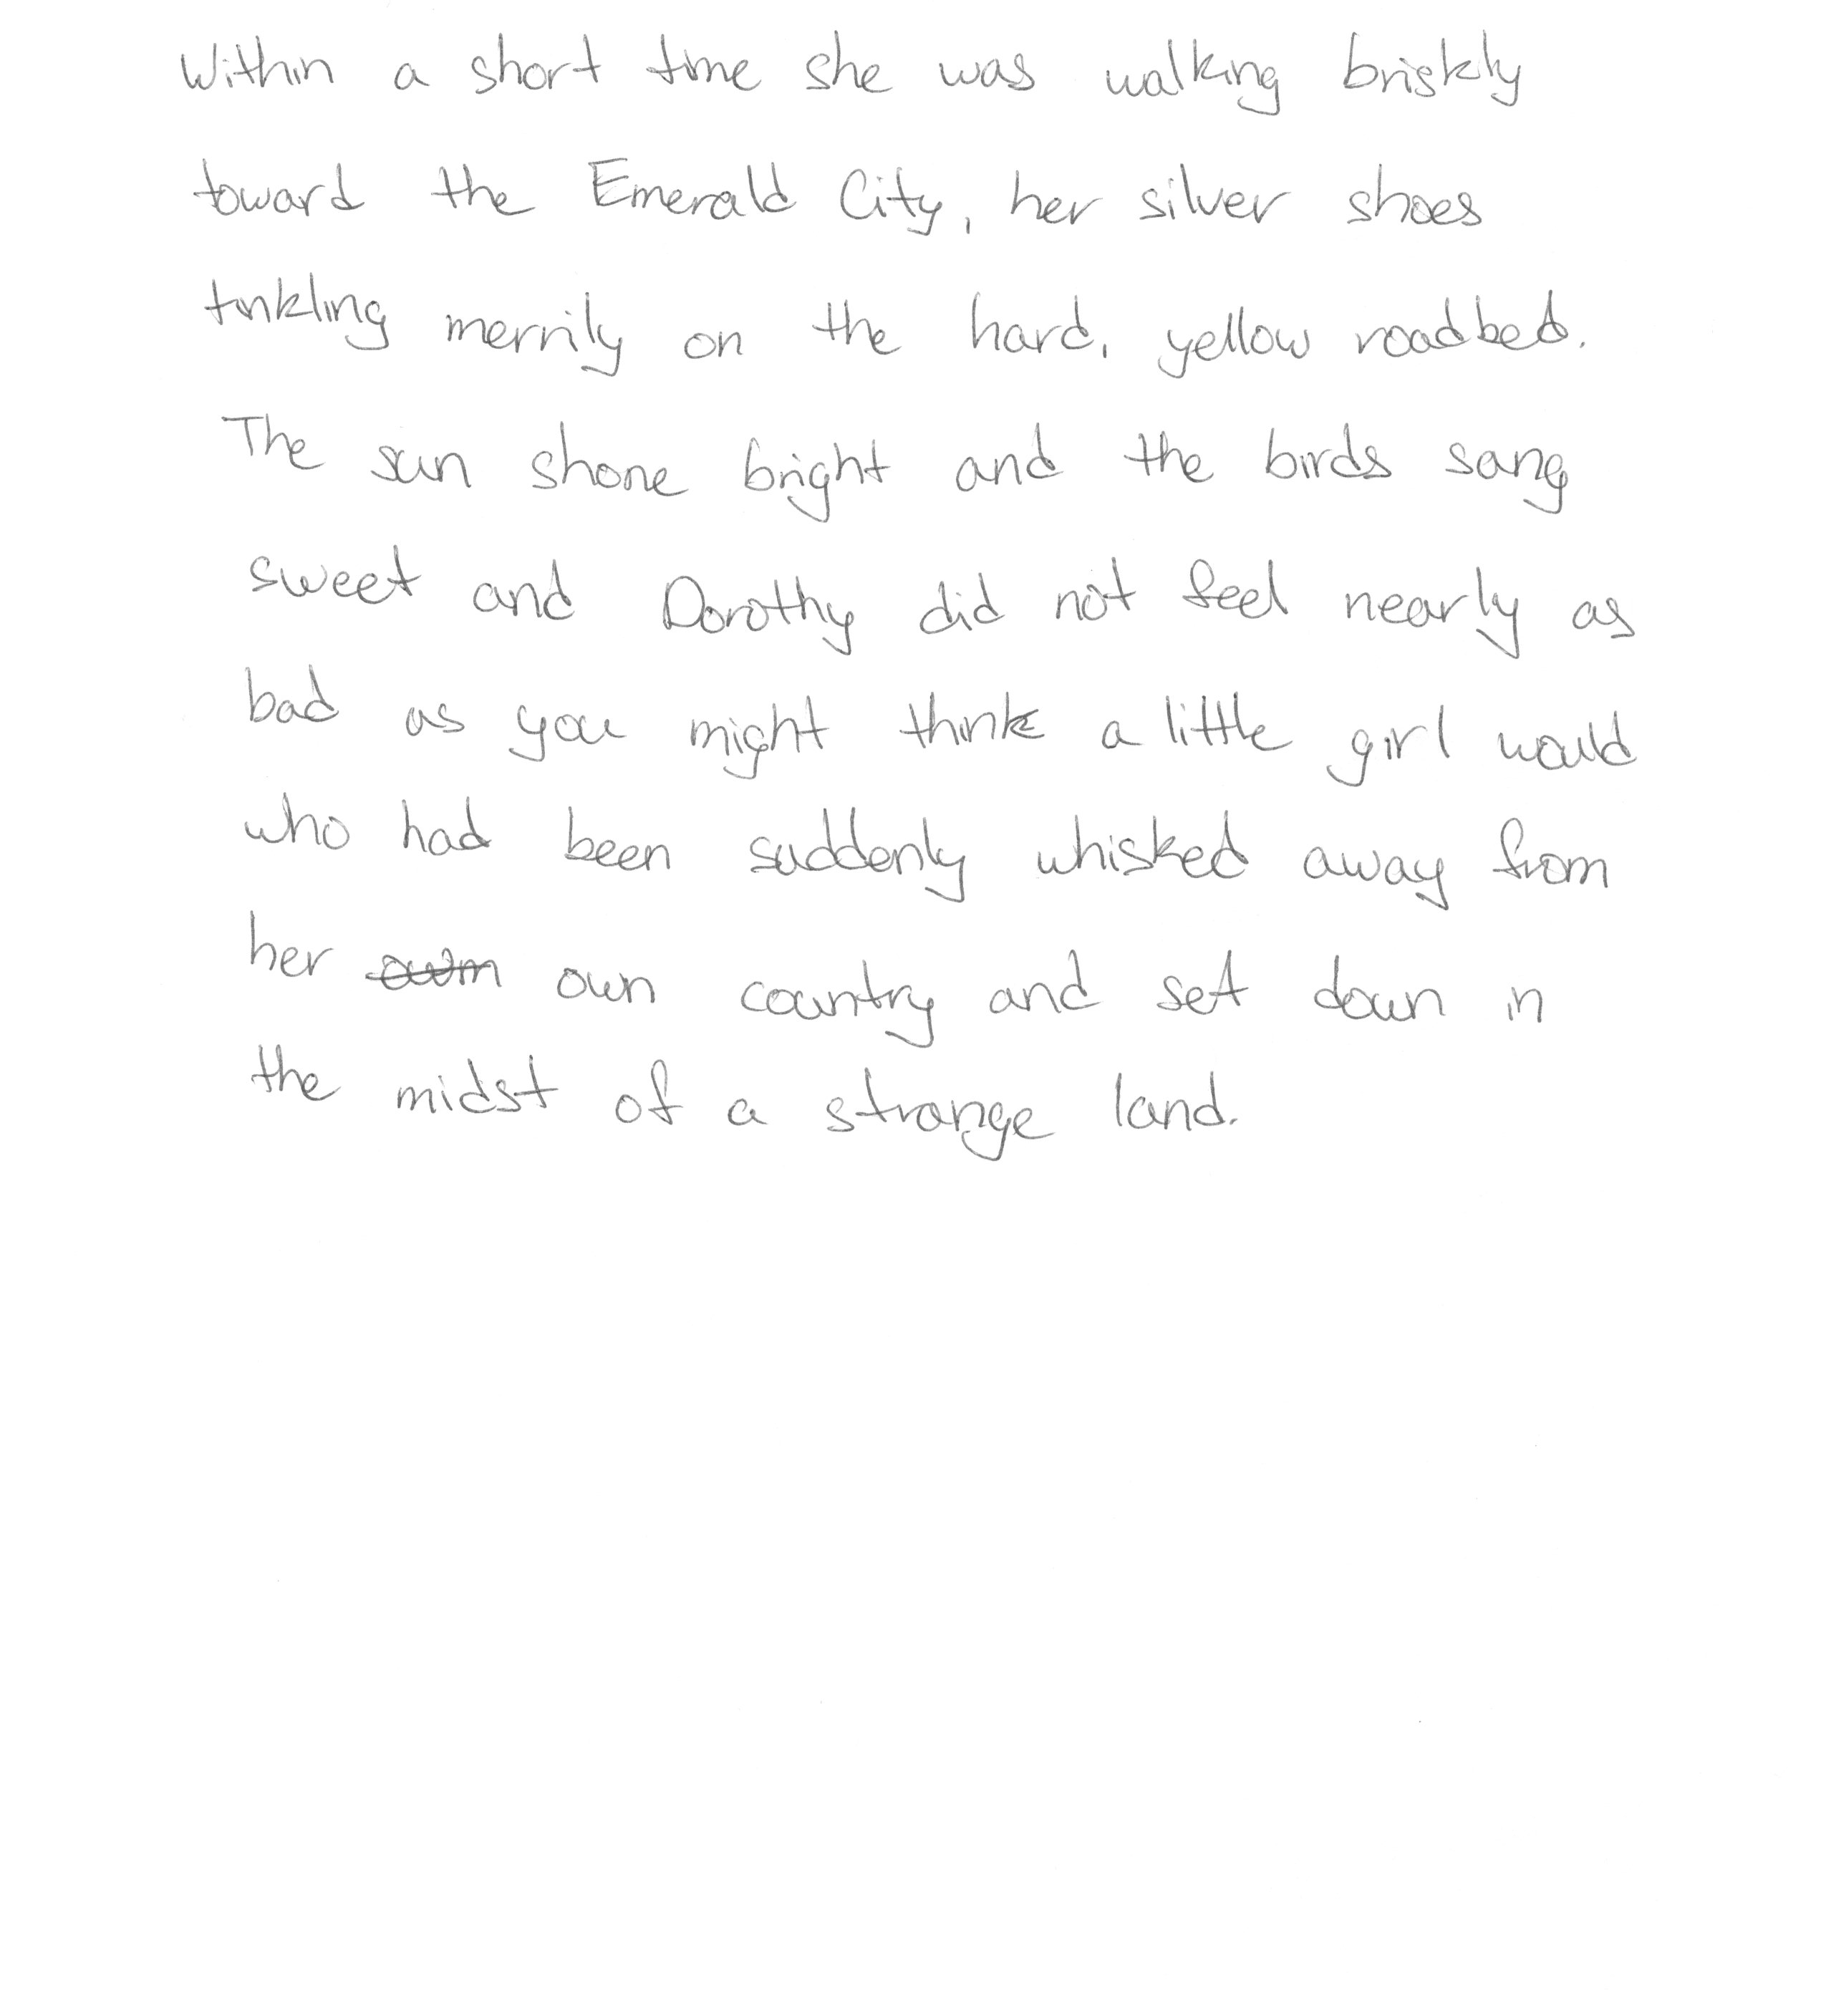 Within a short time she was walking briskly
toward the Emerald City, her silver shoes
tinkling merrily on the hard, yellow roadbed.
The sun shone bright and the birds sang
sweet and Dorothy did not feel nearly as
bad as you might think a little girl would
who had been suddenly whisked away from
her own country and set down in
the midst of a strange land.